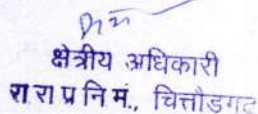 क्षेत्रीय अधिकारी
रा रा प्र नि मं., चित्तौडगढ